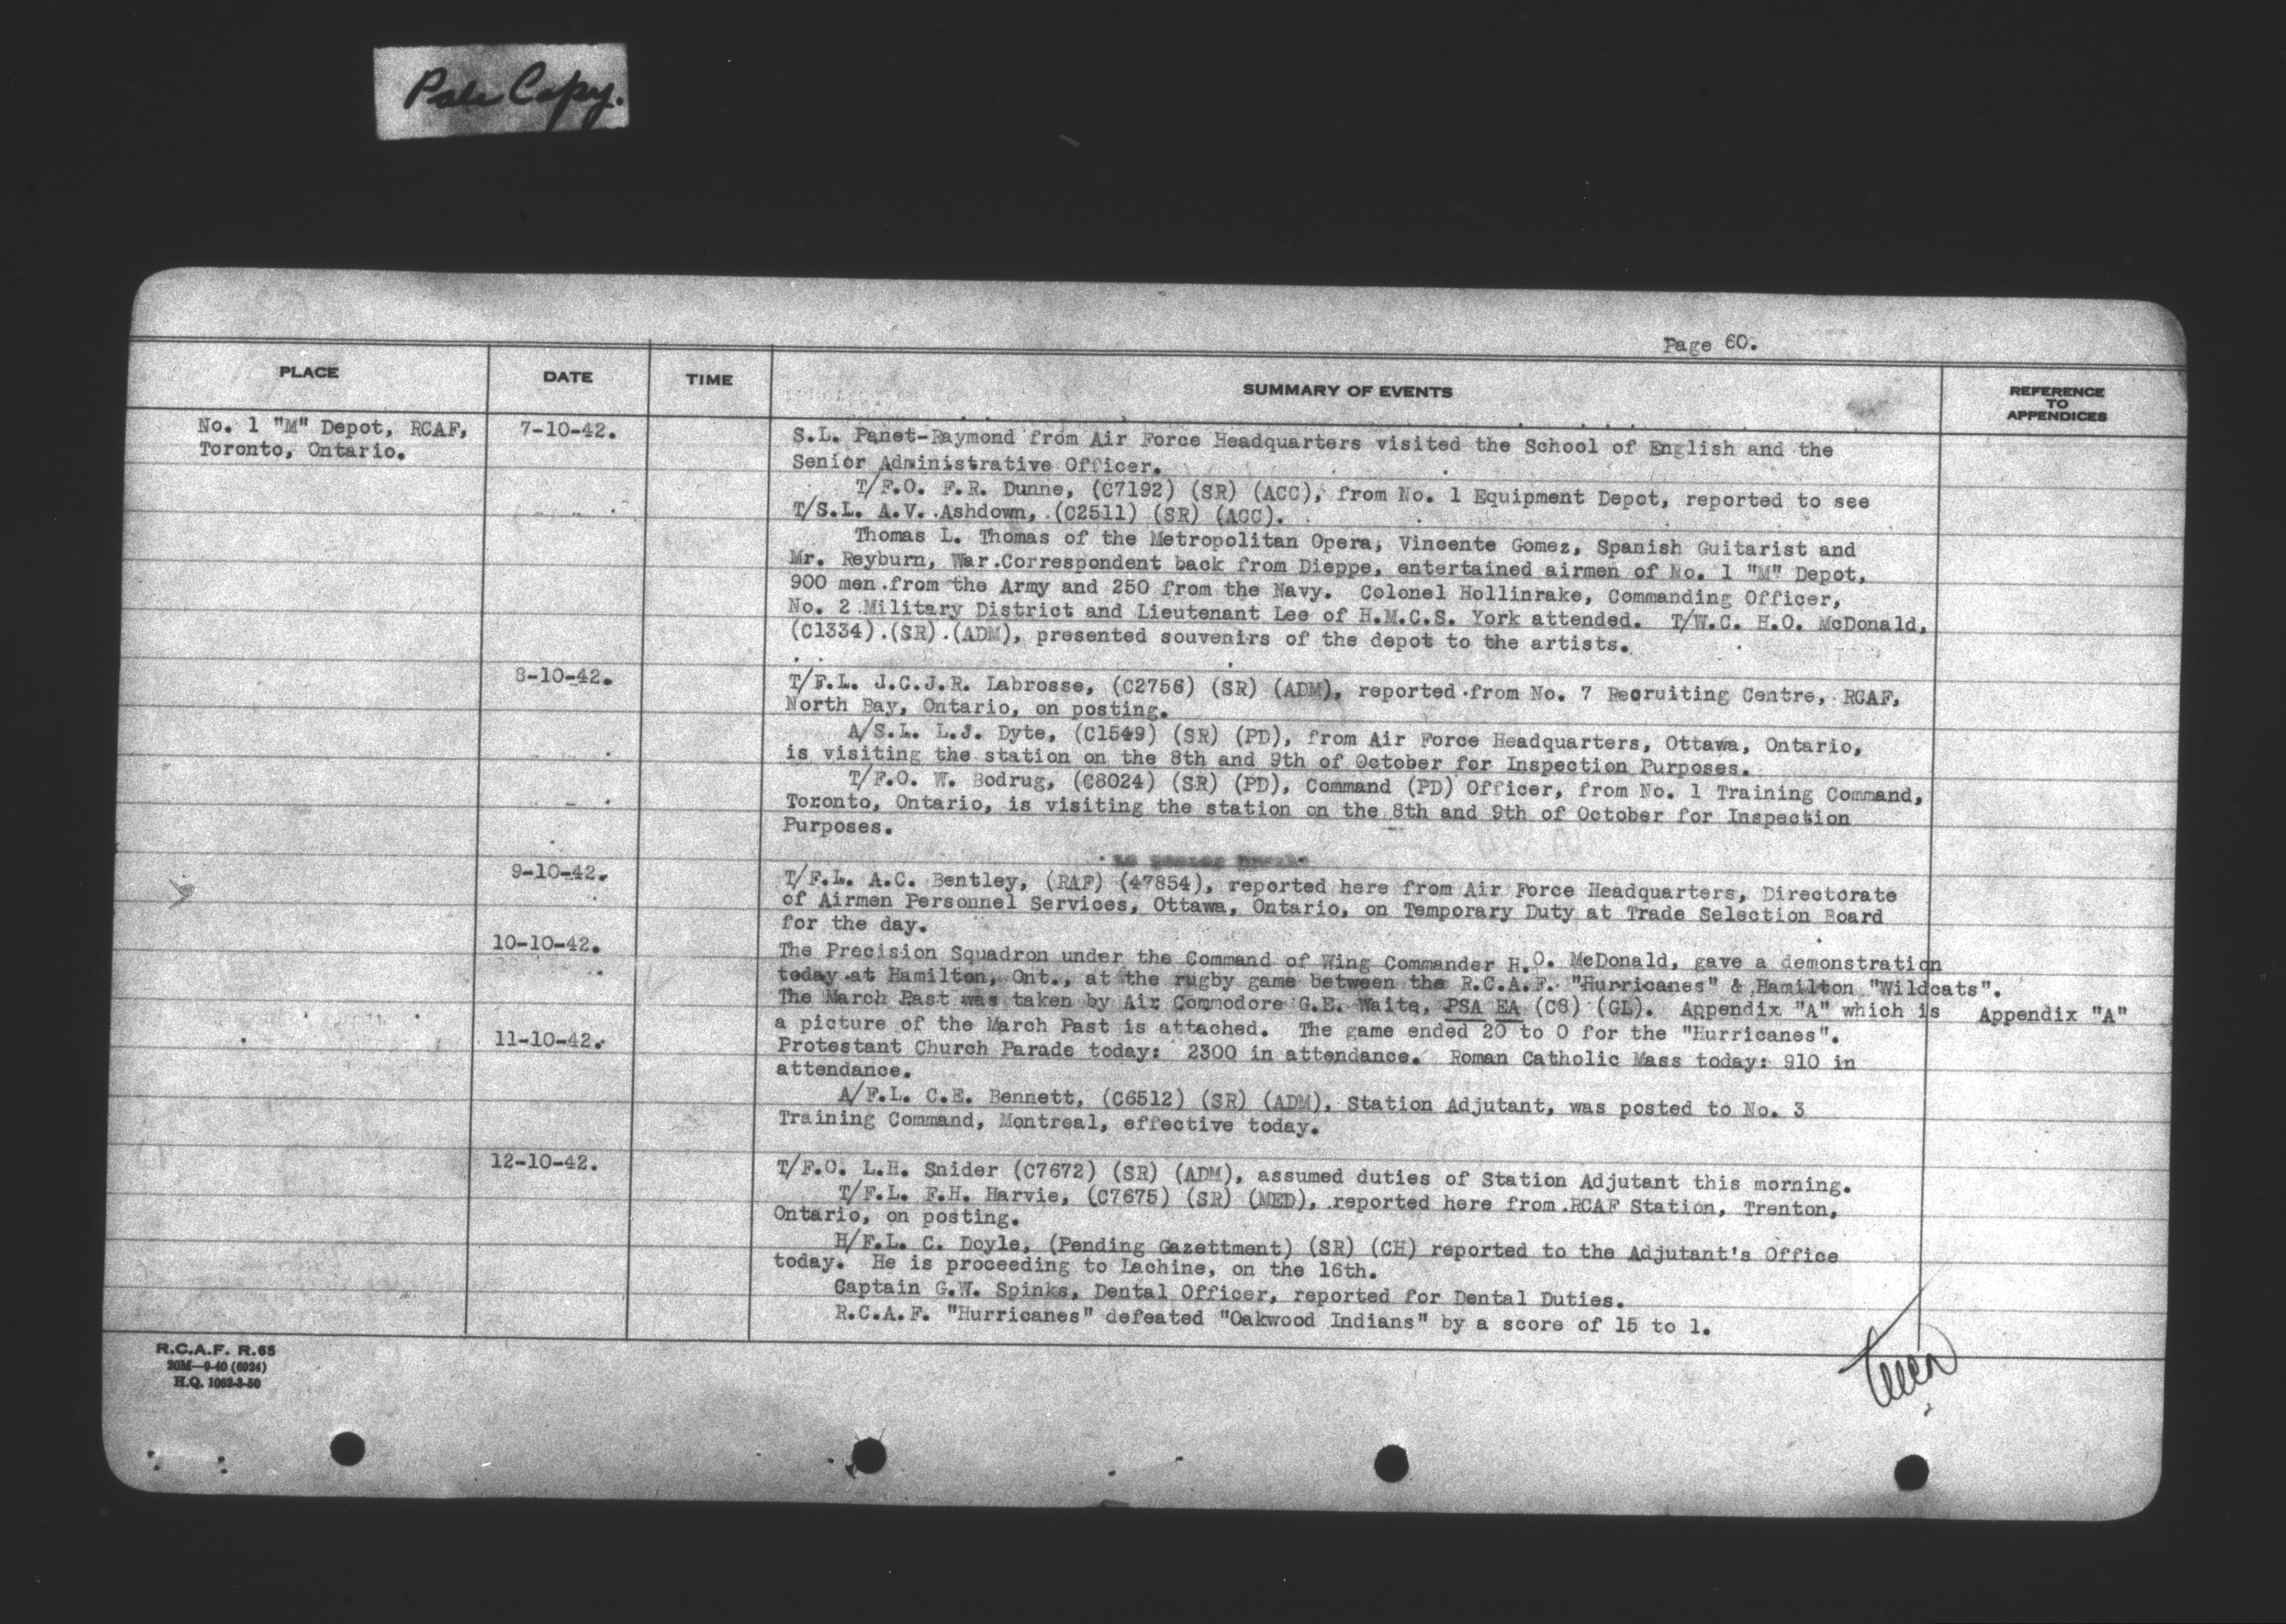 Pale Copy.
Page 60.
PLACE DATE TIME SUMMARY OF EVENTS REFERENCE TO APPENDICES
No. 1 "M" Depot, RCAF,
Toronto, Ontario.
7-10-42.
S.L. Panet-Raymond from Air Force Headquarters visited the School of English and the
Senior Administrative Officer.
T/F.O. F.R. Dunne, (C7192) (SR) (ACC), from No. 1 Equipment Depot, reported to see
T/S.L. A.V. Ashdown, (C2511) (SR) (ACC).
Thomas L. Thomas of the Metropolitan Opera, Vincente Gomez, Spanish Guitarist and
Mr. Reyburn, War Correspondent back from Dieppe, entertained airmen of No. 1 "M" Depot,
900 men from the Army and 250 from the Navy. Colonel Hollinrake, Commanding Officer,
No. 2 Military District and Lieutenant Lee of H.M.C.S. York attended. T/W.C. H.O. McDonald,
(C1334) (SR) (ADM), presented souvenirs of the depot to the artists.
8-10-42.
T/F.L. J.C.J.R. Labrosse, (C2756) (SR) (ADM), reported from No. 7 Recruiting Centre, RCAF,
North Bay, Ontario, on posting.
A/S.L. L.J. Dyte, (C1549) (SR) (PD), from Air Force Headquarters, Ottawa, Ontario,
is visiting the station on the 8th and 9th of October for Inspection Purposes.
T/F.O. W. Bodrug, (C8024) (SR) (PD), Command (PD) Officer, from No. 1 Training Command,
Toronto, Ontario, is visiting the station on the 8th and 9th of October for Inspection
Purposes.
9-10-42.
T/F.L. A.C. Bentley, (RAF) (47854), reported here from Air Force Headquarters, Directorate
of Airmen Personnel Services, Ottawa, Ontario, on Temporary Duty at Trade Selection Board
for the day.
10-10-42.
The Precision Squadron under the Command of Wing Commander H.O. McDonald, gave a demonstration
today at Hamilton, Ont., at the rugby game between the R.C.A.F. "Hurricanes" & Hamilton "Wildcats".
The March Past was taken by Air Commodore G.E. Waite, PSA EA (C8) (GL). Appendix "A" which is Appendix "A"
a picture of the March Past is attached. The game ended 20 to 0 for the "Hurricanes".
11-10-42.
Protestant Church Parade today: 2300 in attendance. Roman Catholic Mass today: 910 in
attendance.
A/F.L. C.E. Bennett, (C6512) (SR) (ADM), Station Adjutant, was posted to No. 3
Training Command, Montreal, effective today.
12-10-42.
T/F.O. L.H. Snider (C7672) (SR) (ADM), assumed duties of Station Adjutant this morning.
T/F.L. F.H. Harvie, (C7675) (SR) (MED), reported here from RCAF Station, Trenton,
Ontario, on posting.
H/F.L. C. Doyle, (Pending Gazettment) (SR) (CH) reported to the Adjutant's Office
today. He is proceeding to Lachine, on the 16th.
Captain G.W. Spinks, Dental Officer, reported for Dental Duties.
R.C.A.F. "Hurricanes" defeated "Oakwood Indians" by a score of 15 to 1.
R.C.A.F. R.65
20M—9-40 (6924)
H.Q. 1062-3-50